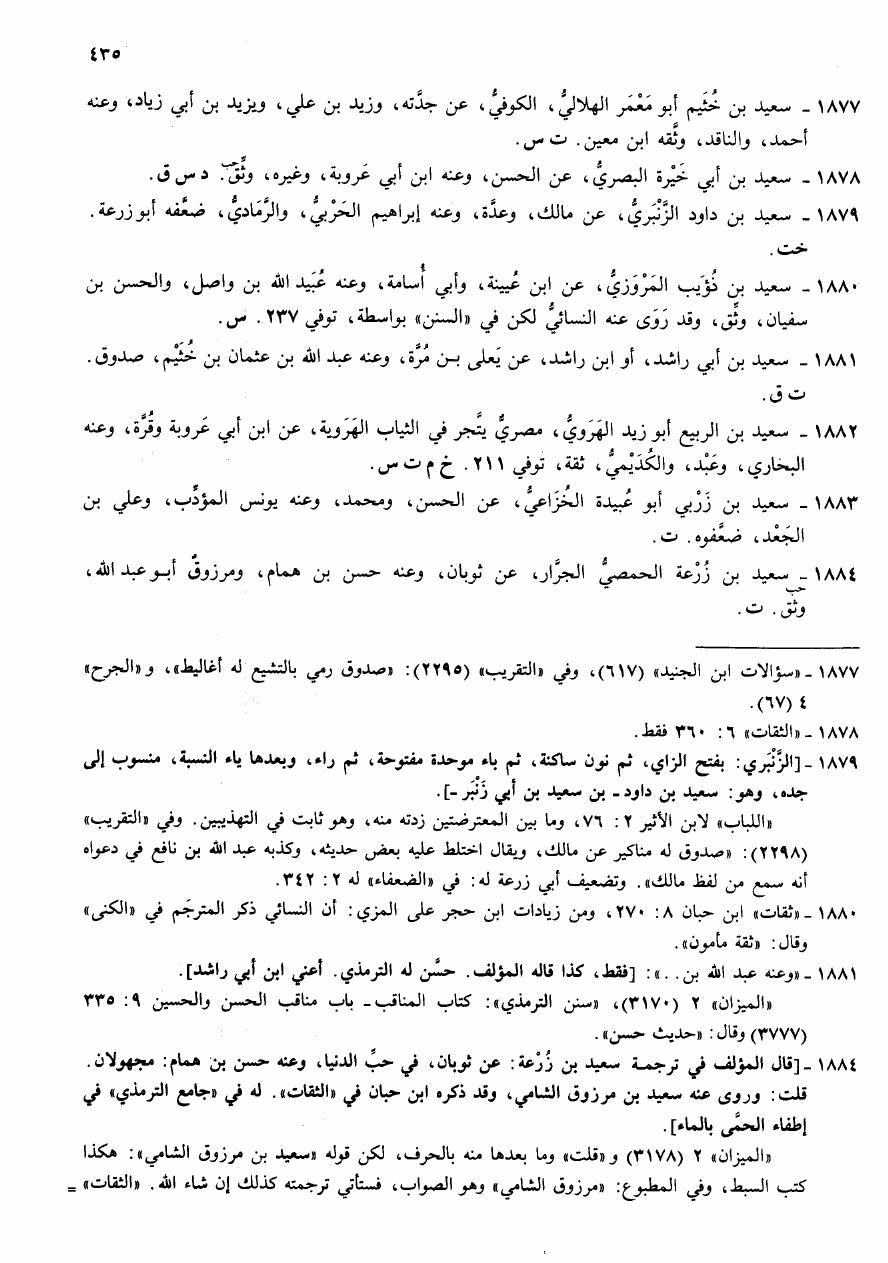 ٤٣٥
١٨٧٧ ـ سعيد بن خُثَيم أبو مَعْمَر الهلاليُّ، الكوفيُّ، عن جدَّته، وزيد بن علي، ويزيد بن أبي زياد، وعنه
أحمد، والناقد، وثَّقه ابن معين. ت س.
١٨٧٨ ـ سعيد بن أبي خَيْرة البصريُّ، عن الحسن، وعنه ابن أبي عَروبة، وغيره، وثِّقَ. حب د س ق.
١٨٧٩ ـ سعيد بن داود الزَّنْبَريُّ، عن مالك، وعدَّة، وعنه إبراهيم الحَرْبيُّ، والرَّماديُّ، ضعَّفه أبو زرعة.
خت.
١٨٨٠ ـ سعيد بن ذُؤَيب المَرْوَزيُّ، عن ابن عُيينة، وأبي أُسامة، وعنه عُبَيد الله بن واصل، والحسن بن
سفيان، وثِّق، وقد رَوَى عنه النسائيُّ لكن في «السنن» بواسطة، توفي ٢٣٧. س.
١٨٨١ ـ سعيد بن أبي راشد، أو ابن راشد، عن يَعلى بـن مُرَّة، وعنه عبد الله بن عثمان بن خُثَيْم، صدوق.
ت ق.
١٨٨٢ ـ سعيد بن الربيع أبو زيد الهَرَويُّ، مصريُّ يتَّجر في الثياب الهَرَوية، عن ابن أبي عَروبة وقُرَّة، وعنه
البخاري، وعَبْد، والكُدَيْميُّ، ثقة، توفي ٢١١. خ م ت س.
١٨٨٣ ـ سعيد بن زَرْبي أبو عُبيدة الخُزَاعيُّ، عن الحسن، ومحمد، وعنه يونس المؤدِّب، وعلي بن
الجَعْد، ضعَّفوه. ت.
١٨٨٤ ـ سعيد بن زُرْعة الحمصيُّ الجرَّار، عن ثوبان، وعنه حسن بن همام، ومرزوقٌ أبـو عبد الله،
حب
وثِّق. ت.
١٨٧٧ ـ «سؤالات ابن الجنيد» (٦١٧)، وفي «التقريب» (٢٢٩٥): «صدوق رمي بالتشيع له أغاليط»، و«الجرح»
٤ (٦٧).
١٨٧٨ ـ «الثقات» ٦: ٣٦٠ فقط.
١٨٧٩ ـ [الزَّنْبَري: بفتح الزاي، ثم نون ساكنة، ثم باء موحدة مفتوحة، ثم راء، وبعدها ياء النسبة، منسوب إلى
جده، وهو: سعيد بن داود ـ بن سعيد بن أبي زَنْبَر ـ].
«اللباب» لابن الأثير ٢: ٧٦، وما بين المعترضتين زدته منه، وهو ثابت في التهذيبين. وفي «التقريب»
(٢٢٩٨): «صدوق له مناكير عن مالك، ويقال اختلط عليه بعض حديثه، وكذبه عبد الله بن نافع في دعواه
أنه سمع من لفظ مالك». وتضعيف أبي زرعة له: في «الضعفاء» له ٢: ٣٤٢.
١٨٨٠ ـ «ثقات» ابن حبان ٨: ٢٧٠، ومن زيادات ابن حجر على المزي: أن النسائي ذكر المترجَم في «الكنى»
وقال: «ثقة مأمون».
١٨٨١ ـ «وعنه عبد الله بن..»: [فقط، كذا قاله المؤلف. حسَّن له الترمذي. أعني ابن أبي راشد].
«الميزان» ٢ (٣١٧٠)، «سنن الترمذي»: كتاب المناقب ـ باب مناقب الحسن والحسين ٩: ٣٣٥
(٣٧٧٧) وقال: «حديث حسن».
١٨٨٤ ـ [قال المؤلف في ترجمـة سعيد بن زُرْعة: عن ثوبان، في حبِّ الدنيا، وعنه حسن بن همام: مجهولان.
قلت: وروى عنه سعيد بن مرزوق الشامي، وقد ذكره ابن حبان في «الثقات». له في «جامع الترمذي» في
إطفاء الحمَّى بالماء].
«الميزان» ٢ (٣١٧٨) و«قلت» وما بعدها منه بالحرف، لكن قوله «سعيد بن مرزوق الشامي»: هكذا
كتب السبط، وفي المطبوع: «مرزوق الشامي» وهو الصواب، فستأتي ترجمته كذلك إن شاء الله. «الثقات» =